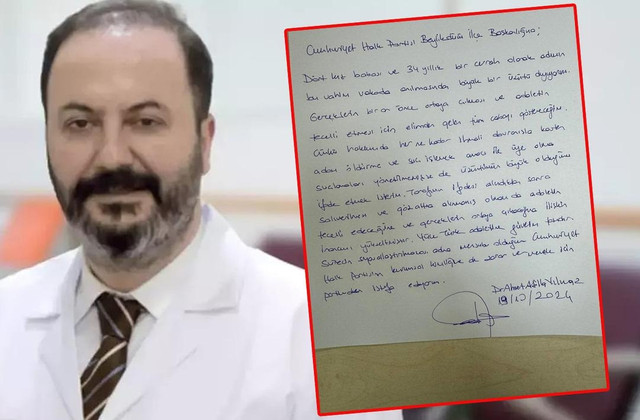 Cumhuriyet Halk Partisi Beylikdüzü İlçe Başkanlığına;
Dört kız babası ve 34 yıllık bir cerrah olarak adımın
bu vahim vakada anılmasından büyük bir üzüntü duyuyorum.
Gerçeklerin bir an önce ortaya çıkması ve adaletin
tecelli etmesi için elimden gelen tüm çabayı göstereceğim.
Çünkü hakkımda her ne kadar ihmali davranışla kasten
adam öldürme ve suç işlemek amacı ile üye olma
suçlamaları yöneltilmemişse de üzüntümün büyük olduğunu
ifade etmek isterim. Tarafımın ifadesi alındıktan sonra
salıverilmem ve gözaltına alınmamış olmam da adaletin
tecelli edeceğine ve gerçeklerin ortaya çıkacağına ilişkin
inancımı yükseltmiştir. Yüce Türk adaletine güvenim tamdır.
Sürecin siyasallaştırılmaması adına mensubu olduğum Cumhuriyet
Halk Partisi'nin kurumsal kimliğine de zarar vermemek için
partimden istifa ediyorum.
Dr Ahmet Atilla Yılmaz
19/10/2024